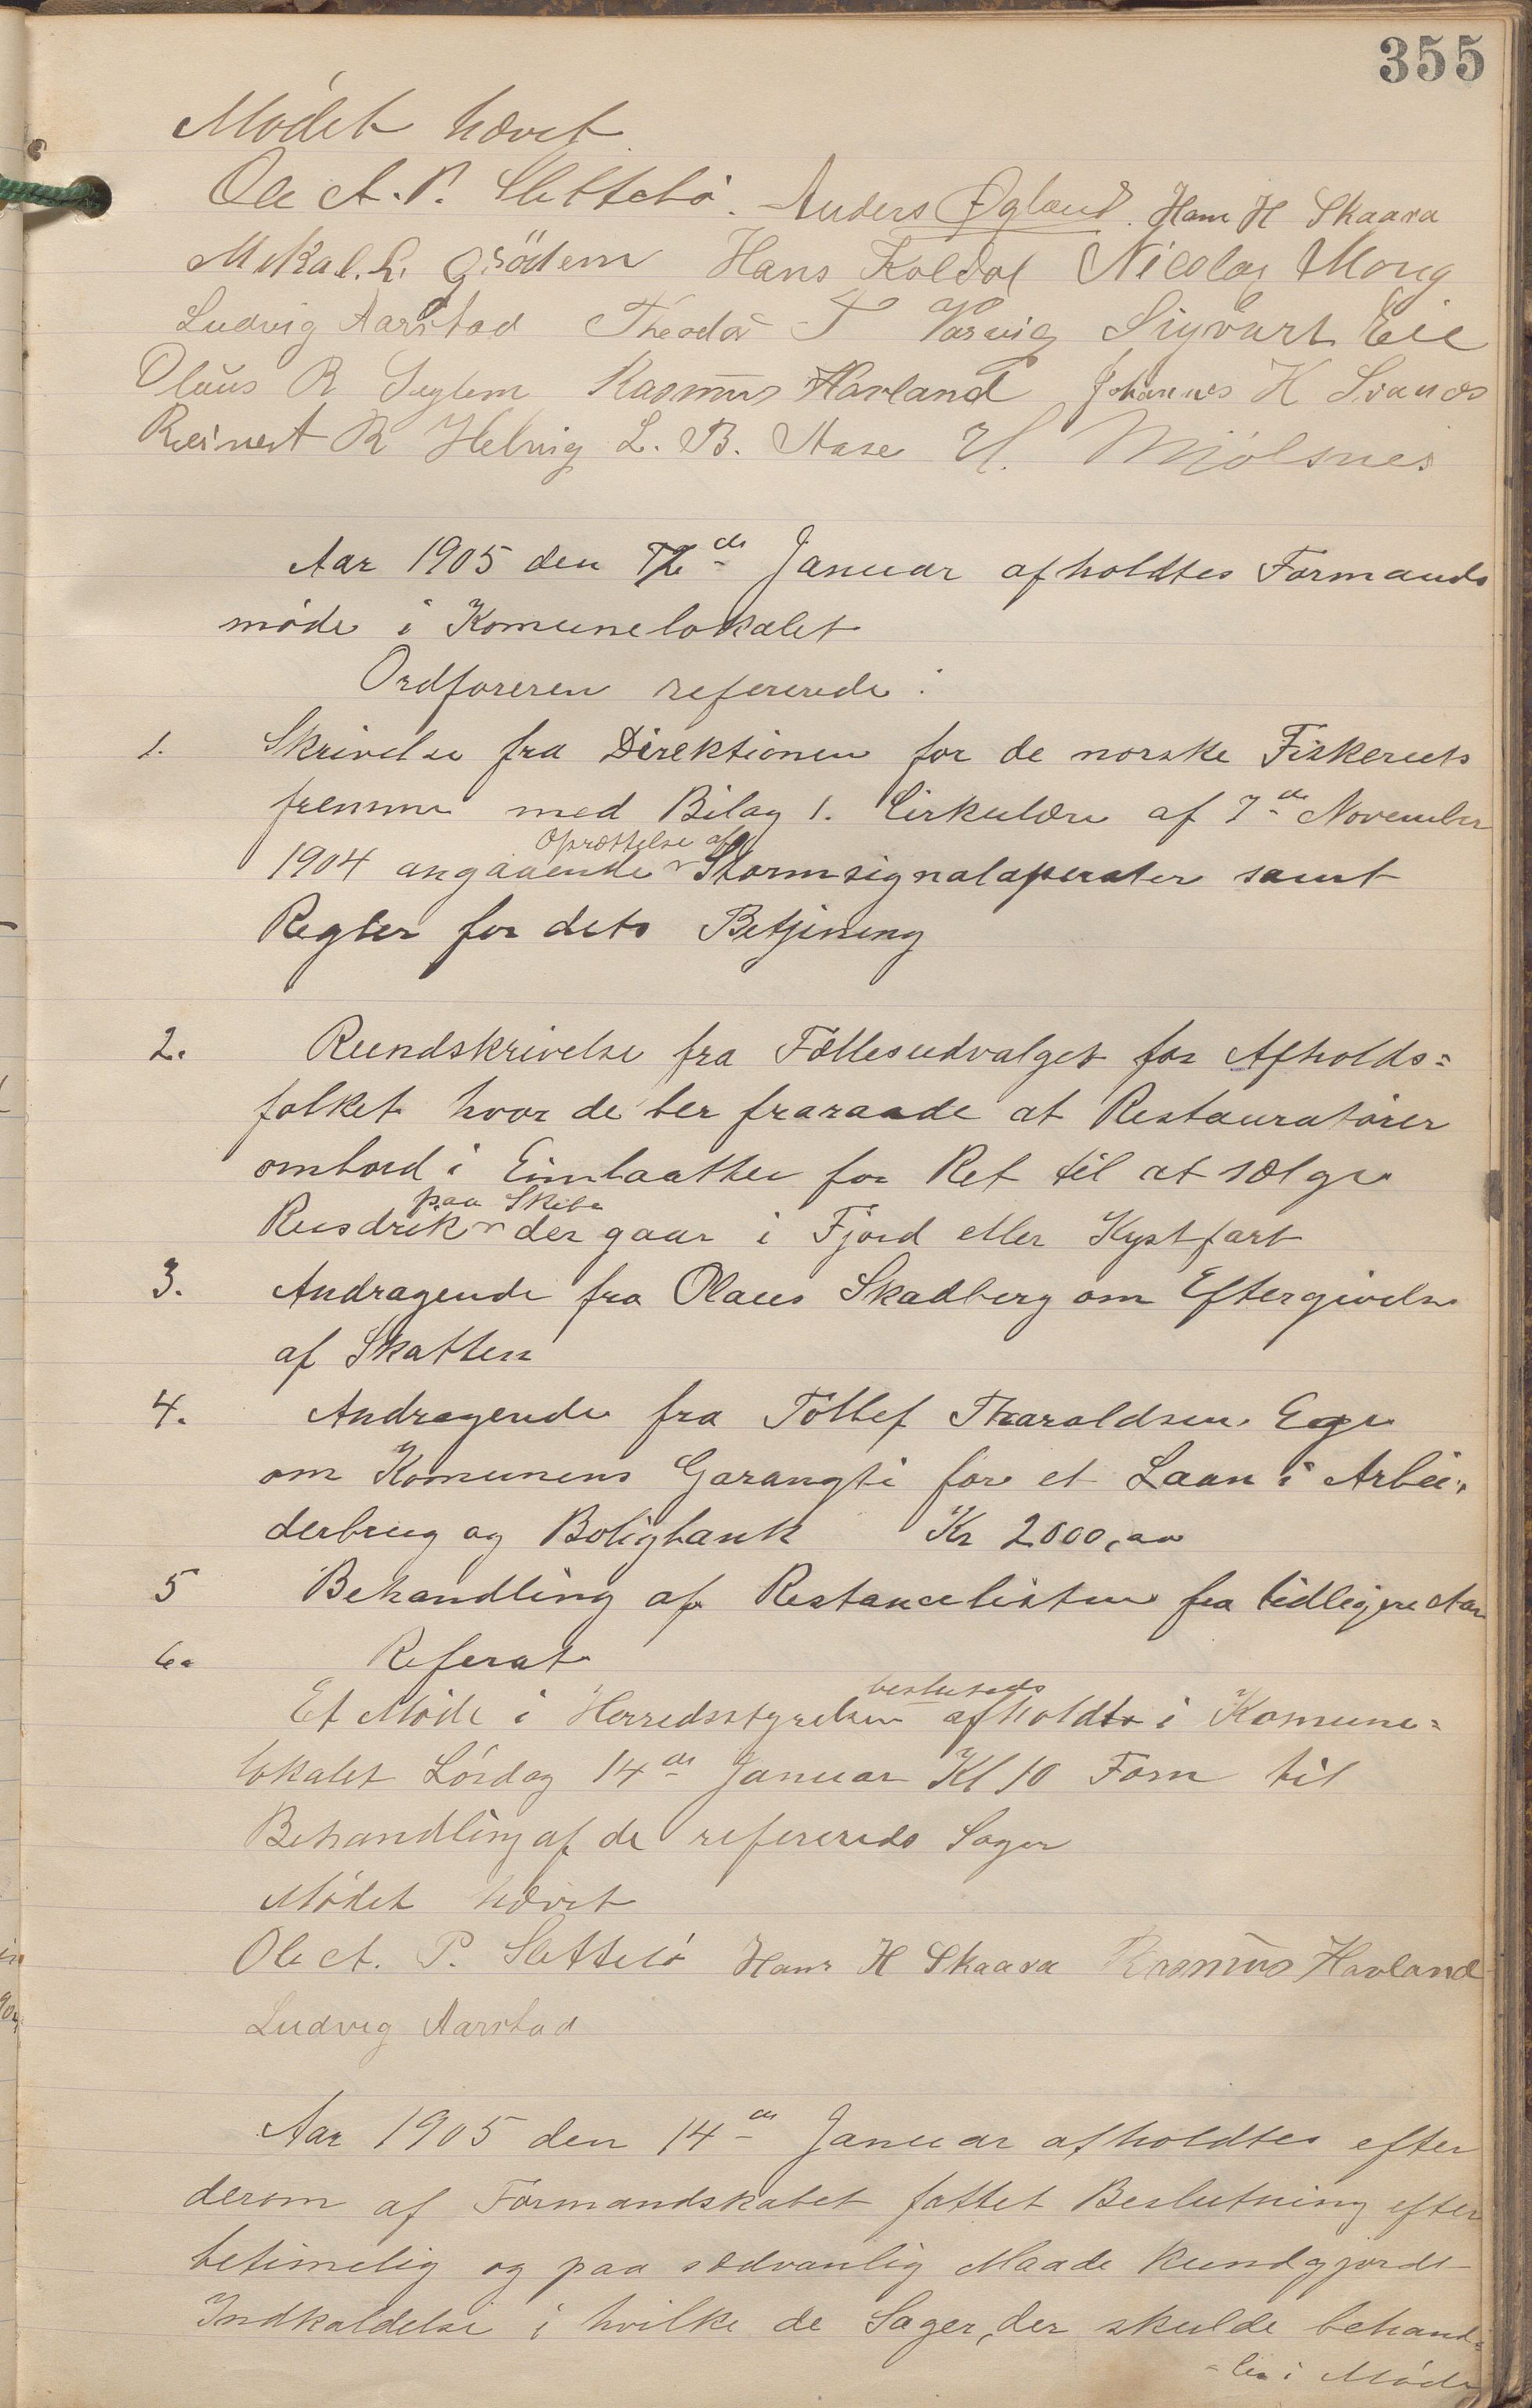 355
Mødet hævet
Ole A. P. Slettebø. Anders Øgland. Hans H Skaara
Mikal. L. Grödem Hans Koldal Nicolai Mong
Ludvig Aarstad Theodor T Varvig Sigvart Eie
Olaus R Seglem Rasmus Havland Johannes H Svanes
Reinert R Helvig L. B. Aase H. Mjølsnes
Aar 1905 den de Januar afholdtes Formands
møde i Komunelokalet
Ordføreren refererede:
1. Skrivelse fra Direktionen for de norske Fiskeriets
fremme med Bilag 1. Cirkulære af 7de November
Oprættelse af
1904 angaaende Stormsignalaperater samt
Regler for dets Betjening
2. Rundskrivelse fra Fællesudvalget for Afholds=
folket hvor de ber fraraade at Restauratører
ombord i Eimbaatten for Ret til at sælge
paa Skibe
Rusdrik der gaar i Fjord eller Kystfart
3. Andragende fra Olaus Skadberg om Eftergivelse
af Skatten
4. Andragende fra Tollef Tharaldsen Ege
om Komunens Garangti for et Laan i Arbei-
derbrug og Boligbank Kr 2000,00
5 Behandling af Restancelisten fra tidligere Aar
6. Referat
besluteds
Et Møde i Herredsstyrelsen afholdts i Komune=
lokalet Lørdag 14de Januar Kl 10 Form til
Behandling af de referereds Sager
Mødet hævet
Ole A. P. Slettebø Hans H Skaara Rasmus Havland
Ludvig Aarstad
Aar 1905 den 14de Januar afholdtes efter
derom af Formandskabet fattet Beslutning efter
betimelig og paa sædvanlig Maade kundgjordt
Indkaldelse i hvilke de Sager, der skulde behand=
=les i Møde